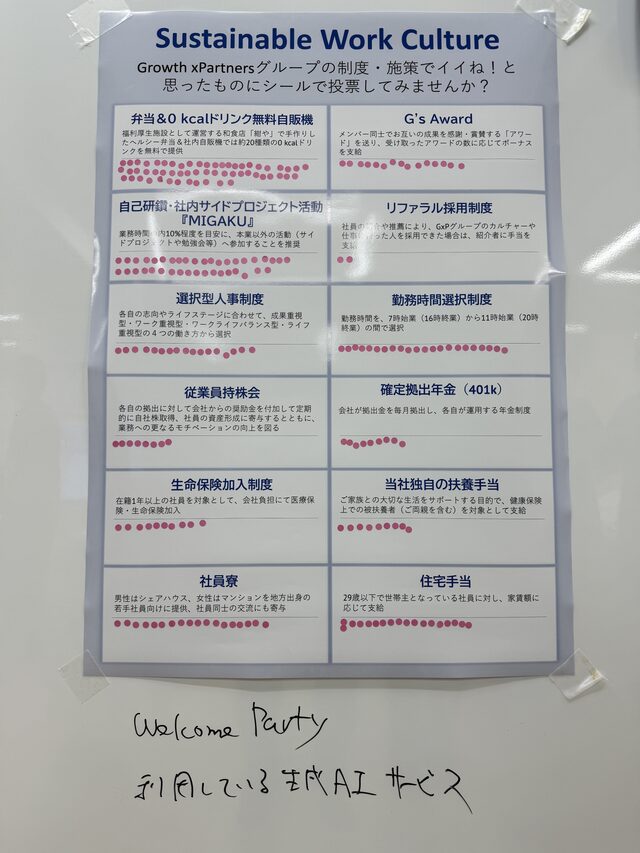 Sustainable Work Culture
Growth xPartnersグループの制度・施策でイイね！と
思ったものにシールで投票してみませんか？
弁当&0 kcalドリンク無料自販機
福利厚生施設として運営する和食店「紺や」で手作りし
たヘルシー弁当＆社内自販機では約20種類の0 kcalドリ
ンクを無料で提供
G's Award
メンバー同士でお互いの成果を感謝・賞賛する「アワー
ド」を送り、受け取ったアワードの数に応じてボーナス
を支給
自己研鑽・社内サイドプロジェクト活動
『MIGAKU』
業務時間の内10%程度を目安に、本業以外の活動（サイ
ドプロジェクトや勉強会等）へ参加することを推奨
リファラル採用制度
社員の紹介や推薦により、GxPグループのカルチャーや
仕事に合った人を採用できた場合は、紹介者に手当を
支給
選択型人事制度
各自の志向やライフステージに合わせて、成果重視
型・ワーク重視型・ワークライフバランス型・ライフ
重視型の４つの働き方から選択
勤務時間選択制度
勤務時間を、7時始業（16時終業）から11時始業（20時
終業）の間で選択
従業員持株会
各自の拠出に対して会社からの奨励金を付加して定期
的に自社株取得、社員の資産形成に寄与するとともに、
業務への更なるモチベーションの向上を図る
確定拠出年金（401k）
会社が拠出金を毎月拠出し、各自が運用する年金制度
生命保険加入制度
在籍1年以上の社員を対象として、会社負担にて医療保
険・生命保険加入
当社独自の扶養手当
ご家族との大切な生活をサポートする目的で、健康保険
上での被扶養者（ご両親を含む）を対象として支給
社員寮
男性はシェアハウス、女性はマンションを地方出身の
若手社員向けに提供、社員同士の交流にも寄与
住宅手当
29歳以下で世帯主となっている社員に対し、家賃額に
応じて支給
Welcome Party
利用している生成AIサービス